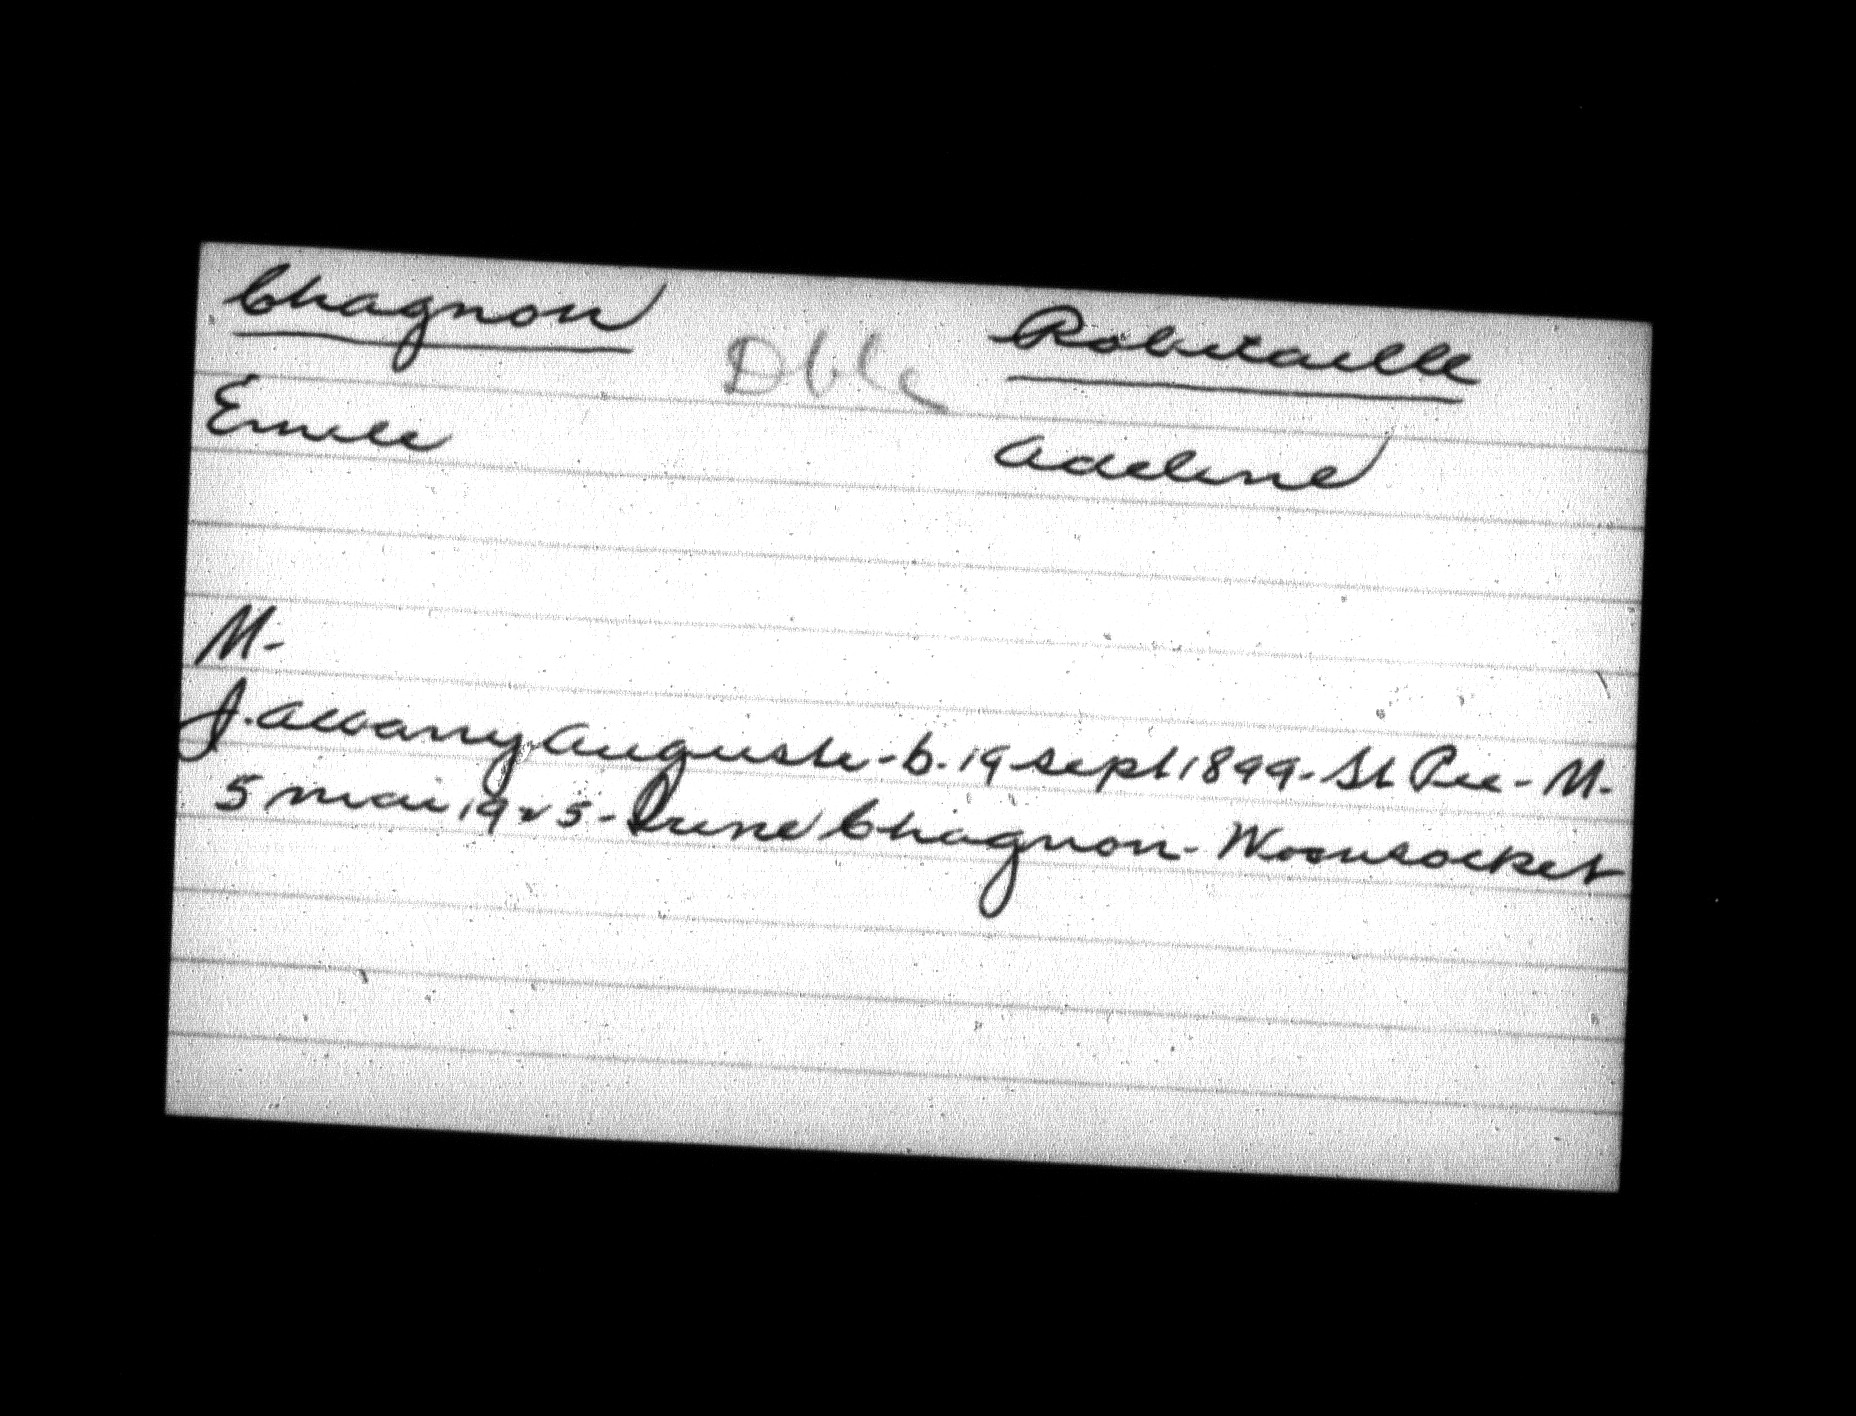 Chagnon Dble Robitaille
Emile Adeline
M-
J. Albany Auguste - b. 19 sept 1899 - St Pie - M.
5 mai 1925 - Irene Chagnon - Woonsocket